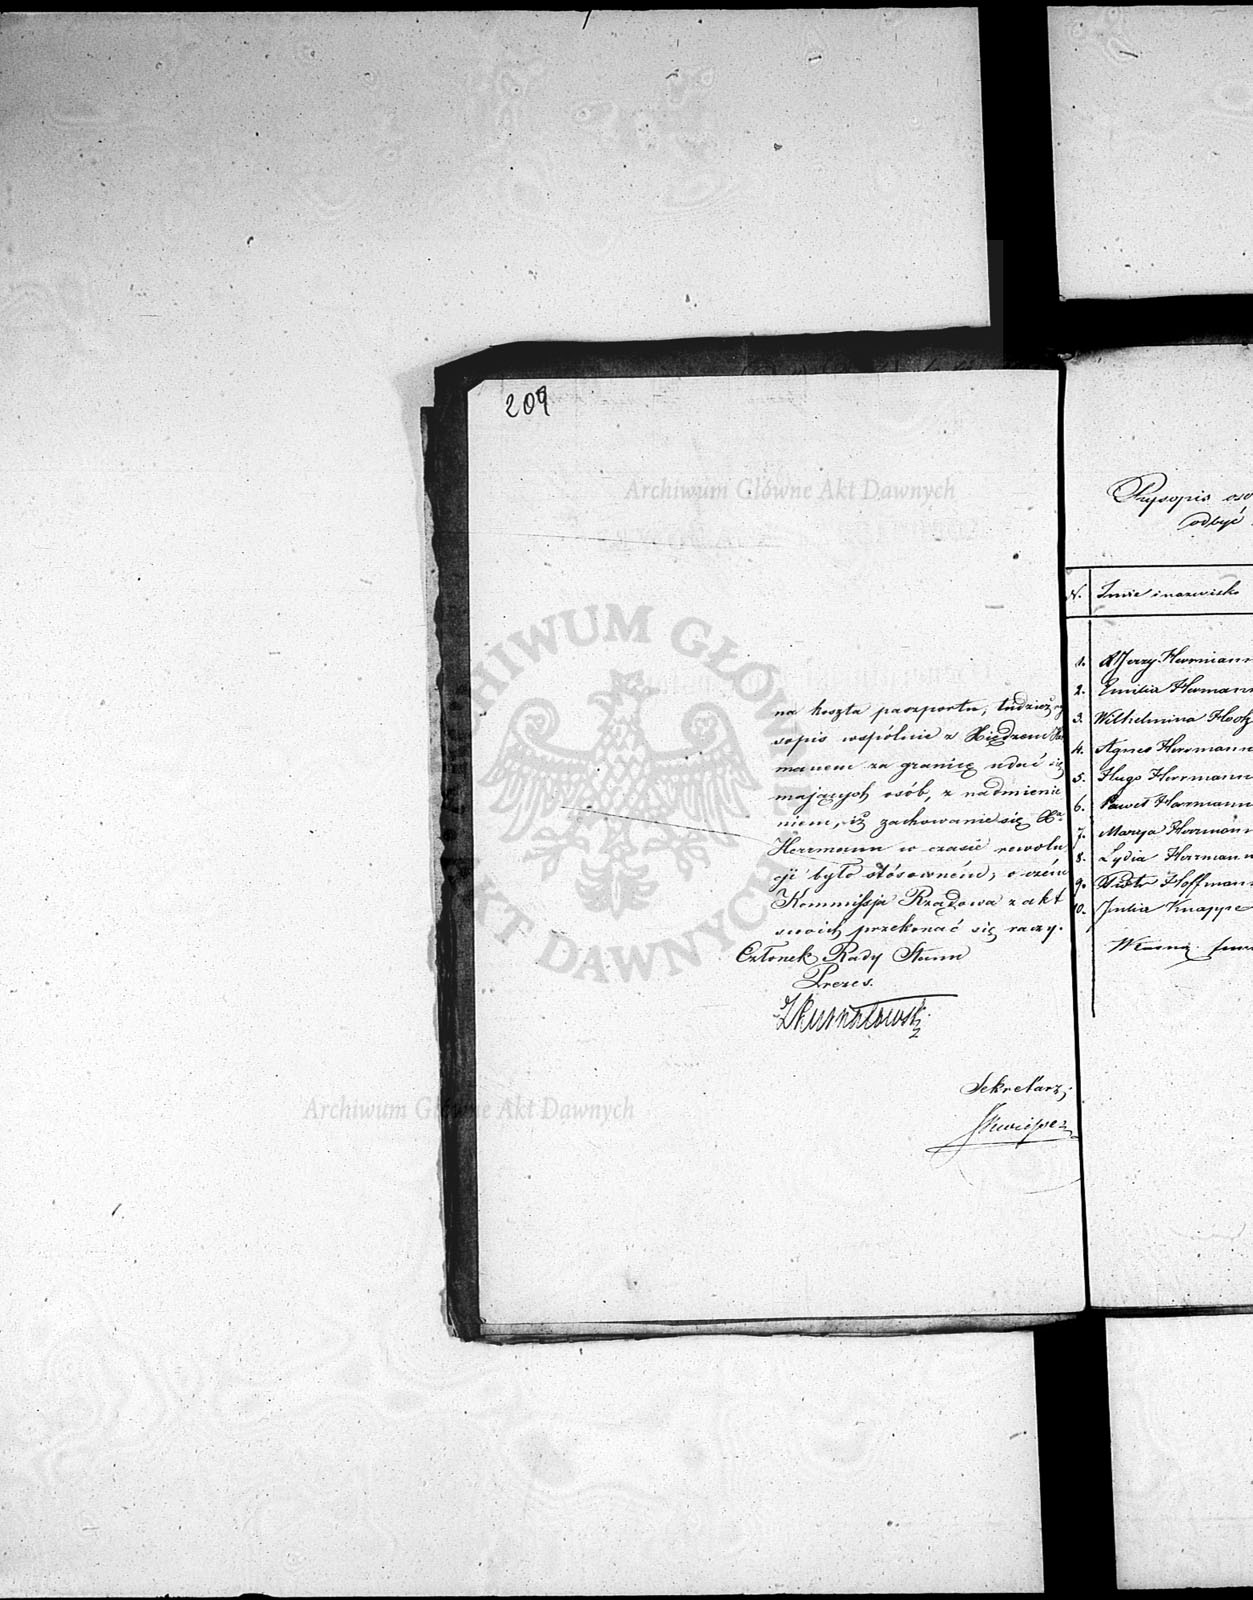 209
Archiwum Główne Akt Dawnych
na koszta paszportu, tudzież ry
sopis wspólnie z Xiędzem Her
manem za granicę udać się
mających osób, z nadmienie
niem, iż zachowanie się Xa
Herrmann w czasie rewolu
cji było stósowném, o czém
Kommissja Rządowa z akt
swoich przekonać się raczy.
Członek Rady Stanu
Prezes.
Sekretarz
Archiwum Główne Akt Dawnych
ARCHIWUM GŁÓWNE AKT DAWNYCH
Rysopis oso
odbyć
N. Imie i nazwisko
1. X Jerzy Herrmann
2. Emilia Hermann
3. Wilhelmina
4. Agnes Herrmann
5. Hugo Herrmann
6. Paweł Herrmann
7. Marya Herrmann
8. Lydia Herrmann
9. Piotr Hoffmann
10. Julia Knappe